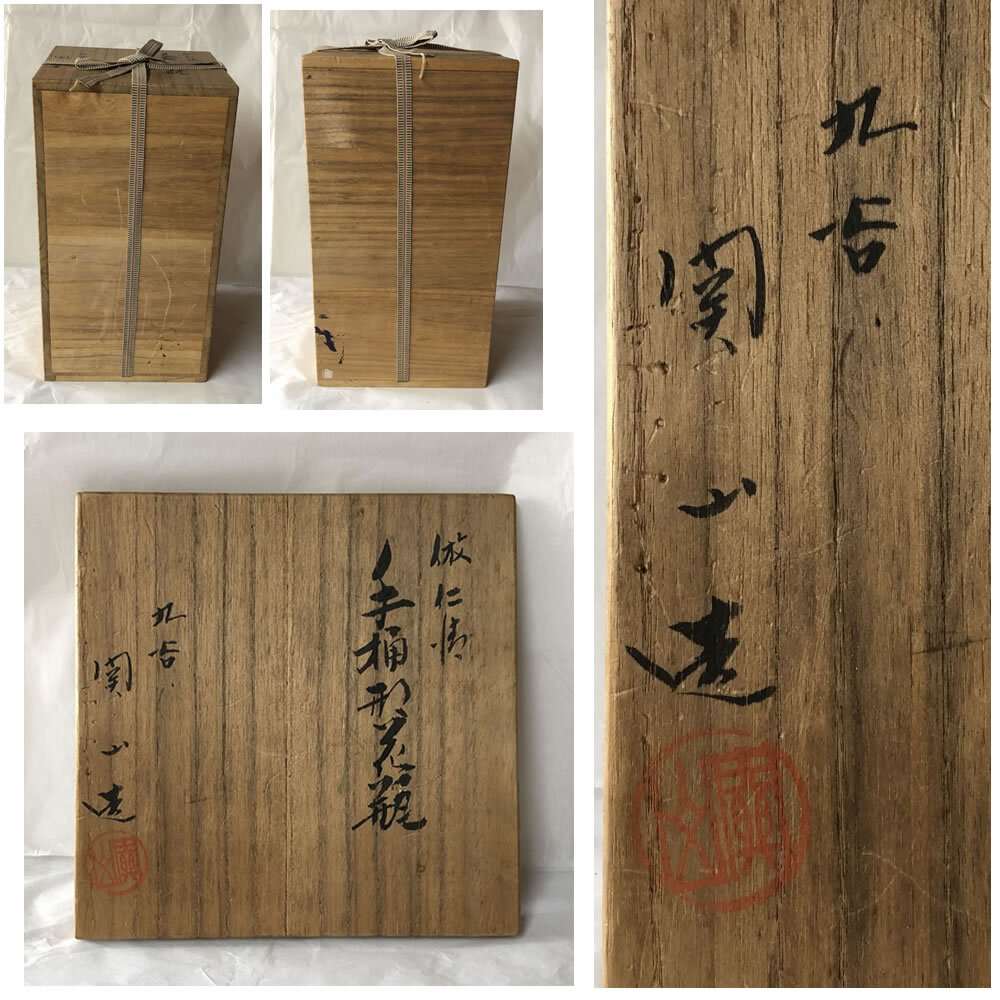 倣仁清
手桶形花瓶
九谷
関山造
関山
九谷
関山造
関山